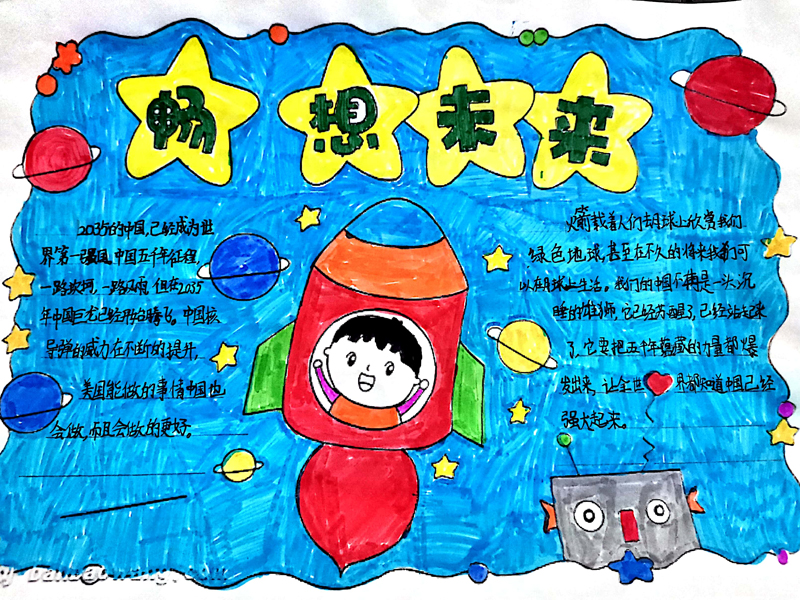 畅想未来
2035的中国,已经成为世
界第一强国.中国五千年征程,
一路坎坷,一路风雨,但在2035
年中国巨龙已经开始腾飞。中国核
导弹的威力在不断的提升.
美国能做的事情中国也
会做,而且会做的更好。
火箭载着人们去月球上欣赏我们
绿色地球,甚至在不久的将来我们可
以在月球上生活。我们的祖国不再是一头沉
睡的雄狮,它已经苏醒了,已经站起来
了,它要把五千年蕴藏的力量都爆
发出来,让全世界都知道中国已经
强大起来。